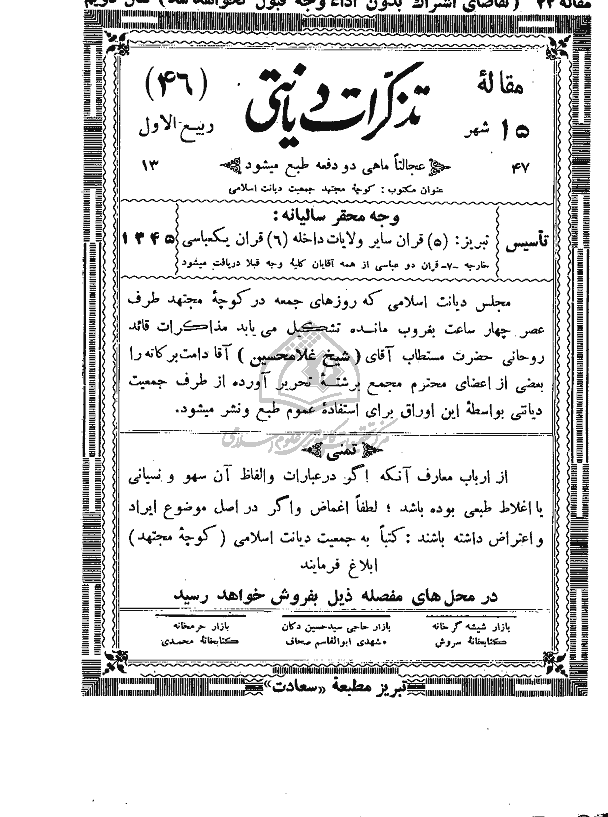 مقاله ۲۲ (تقاضای اشتراک بدون اداء وجه قبول نخواهد شد) سال دویم
مقالهٔ
تذکرات دیانتی
(۴۶)
۱۵ شهر
ربیع‌الاول
۴۷
عجالتاً ماهی دو دفعه طبع میشود
۱۳
عنوان مکتوب : کوچهٔ مجتهد جمعیت دیانت اسلامی
وجه محقر سالیانه :
تأسیس
تبریز : (۵) قران سایر ولایات داخله (۶) قران یکعباسی
۱۳۴۵
خارجه -۷- قران دو عباسی از همه آقایان کلیهٔ وجه قبلا دریافت میشود
مجلس دیانت اسلامی که روزهای جمعه در کوچهٔ مجتهد طرف
عصر چهار ساعت بغروب مانده تشکیل می یابد مذاکرات قائد
روحانی حضرت مستطاب آقای (شیخ غلامحسین) آقا دامت برکاته را
بعضی از اعضای محترم مجمع برشتهٔ تحریر آورده از طرف جمعیت
دیانتی بواسطهٔ این اوراق برای استفادهٔ عموم طبع ونشر میشود.
تمنی
از ارباب معارف آنکه اگر درعبارات والفاظ آن سهو و نسیانی
یا اغلاط طبعی بوده باشد ؛ لطفاً اغماض واگر در اصل موضوع ایراد
و اعتراض داشته باشند : کتباً به جمعیت دیانت اسلامی (کوچهٔ مجتهد)
ابلاغ فرمایند
در محل های مفصله ذیل بفروش خواهد رسید
بازار شیشه گر خانه
بازار حاجی سیدحسین دکان
بازار حرمخانه
کتابخانهٔ سروش
مشهدی ابوالقاسم صحاف
کتابخانهٔ محمدی
تبریز مطبعهٔ «سعادت»